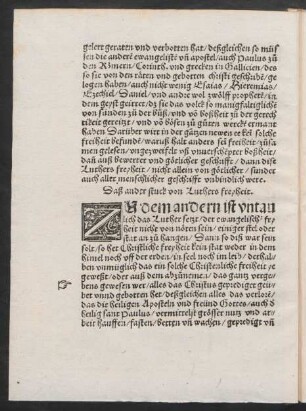 gelert geraten vnd verbotten hat/ deßgleichen so müs
sen die andere ewangelistē vñ apostel/ auch Paulus zů
den Rŏmern/ Corinth. vnd grecken in Gallicien/ des
so sie von den räten vnd gebotten christi geschribē/ ge
logen haben/ auch nicht wenig Esaias/ Hieremias/
Ezechiel/ Daniel/ vnd andre wol zwŏlff prophetē/ in
dem geyst geirret/ dz sie das volck so manigfaltigliche
von sunden zů der bůß/ vnd vō boßheit zů der gerech
tikeit gereitzt/ vnd vō bŏsen zů gůten werckē ermant
haben Darüber wirt in der gātzen newen ee kei solche
freiheit befundē/ warauß halt anders sei freiheit zůsa
men gelesen/ ungezweifelt vß vnuerschāpter boßheit/
dañ auß bewerter vnd gŏtlicher geschrifft/ dann dise
Luthers freiheit/ nicht allein von gŏtlicher/ sunder
auch aller menschlicher geschrifft vnbindlich were.
Daß ander stuck von Luthers freyheit.
ZU dem andern ist vntau
lich das Luther setzt/ der ewangelisch/ fry
heit nichs von nŏten sein/ einiger stel oder
stat an zů hangen/ Dann so diß war sein
solt/ so het Christliche freyheit kein stat weder in dem
himel noch vff der erden/ in seel noch im leib/ derhal
ben vnmüglich das ein solche Christenliche freiheit ye
geweßt/ oder auß dem abzůneme/ das gantz verge
bens gewesen wer/ alles das Christus geprediget gen
bet vnnd gebotten het/ deßgleichen alles das verlorē/
das die heiligen Aposteln vnd freünd Gottes/ auch d
heilig sant Paulus/ vermittelst grŏsser nutz vnd ar-
beit hauffen/ fasten/ betten vñ wachen/ geprediget vñ